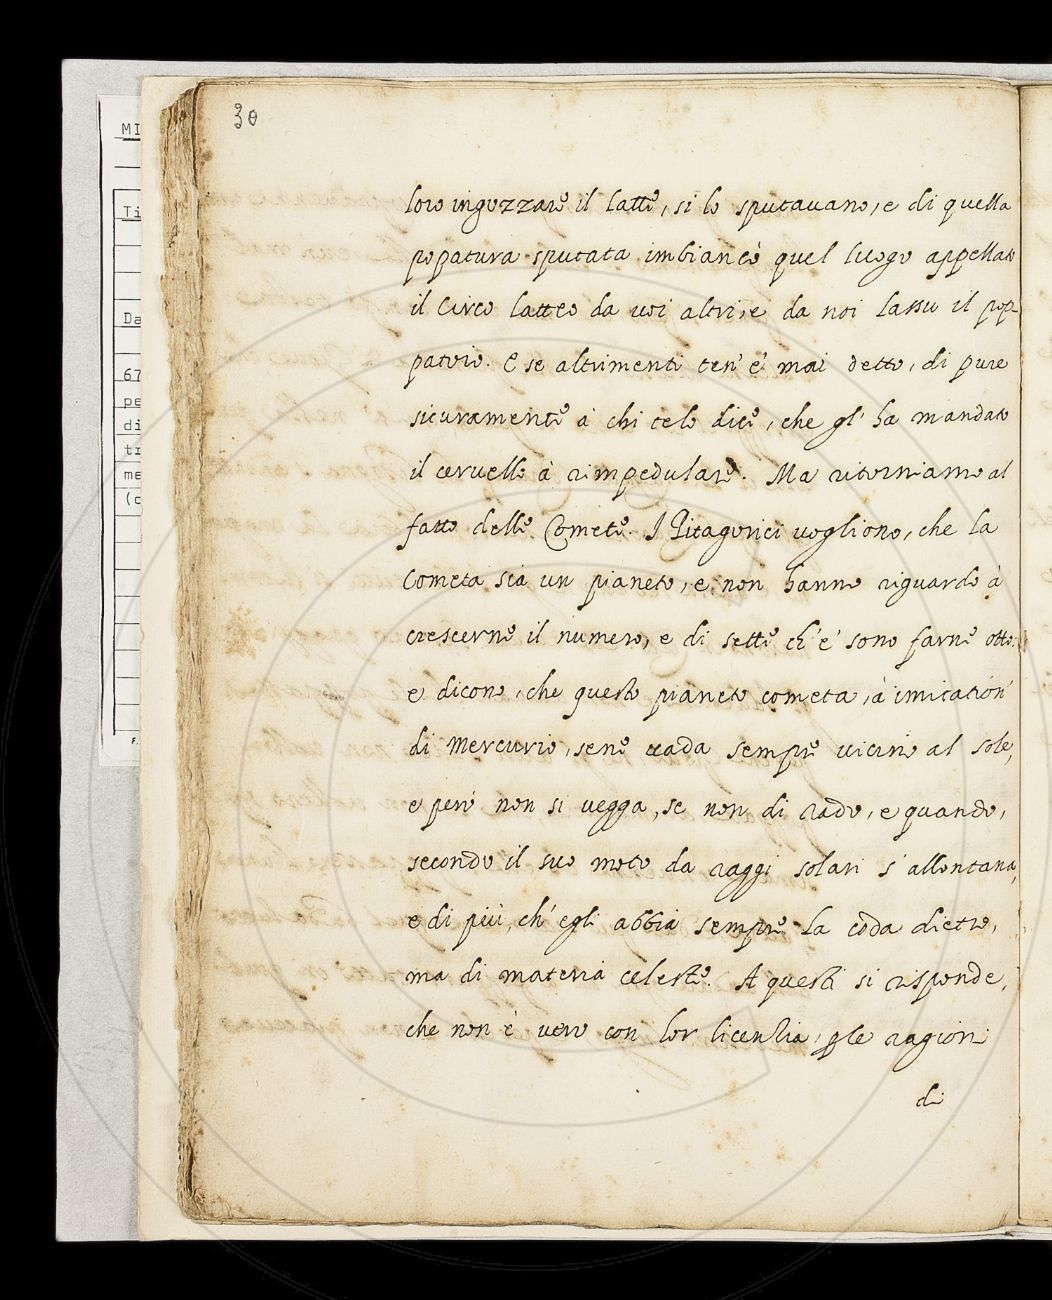 30
MI
Ti
Da
67
pe
di
tr
me
(c
F.
loro ingozzare il latte, si lo sputauano, e di quella
popatura sputata imbiancò quel luogo appellato
il Circo latteo da uoi altri, e da noi lassu il pop-
patoio. E se altrimenti ten' è mai detto, di pure
sicuramente à chi telo dice, che gl' ha mandato
il ceruello à rimpedulare. Ma ritorniamo al
fatto delle Comete. I Pitagorici uogliono, che la
Cometa sia un pianeto, e non hanno riguardo à
crescerne il numero, e di sette ch' e' sono farne otto.
e dicono, che questo pianeto cometa, à imitation'
di Mercurio, sene uada sempre uicino al sole,
e però non si uegga, se non di rado, e quando,
secondo il suo moto da raggi solari s' allontana,
e di più, ch' egli abbia sempre la coda dietro,
ma di materia celeste. A questi si risponde,
che non è uero con lor licenzia, ple ragioni
di